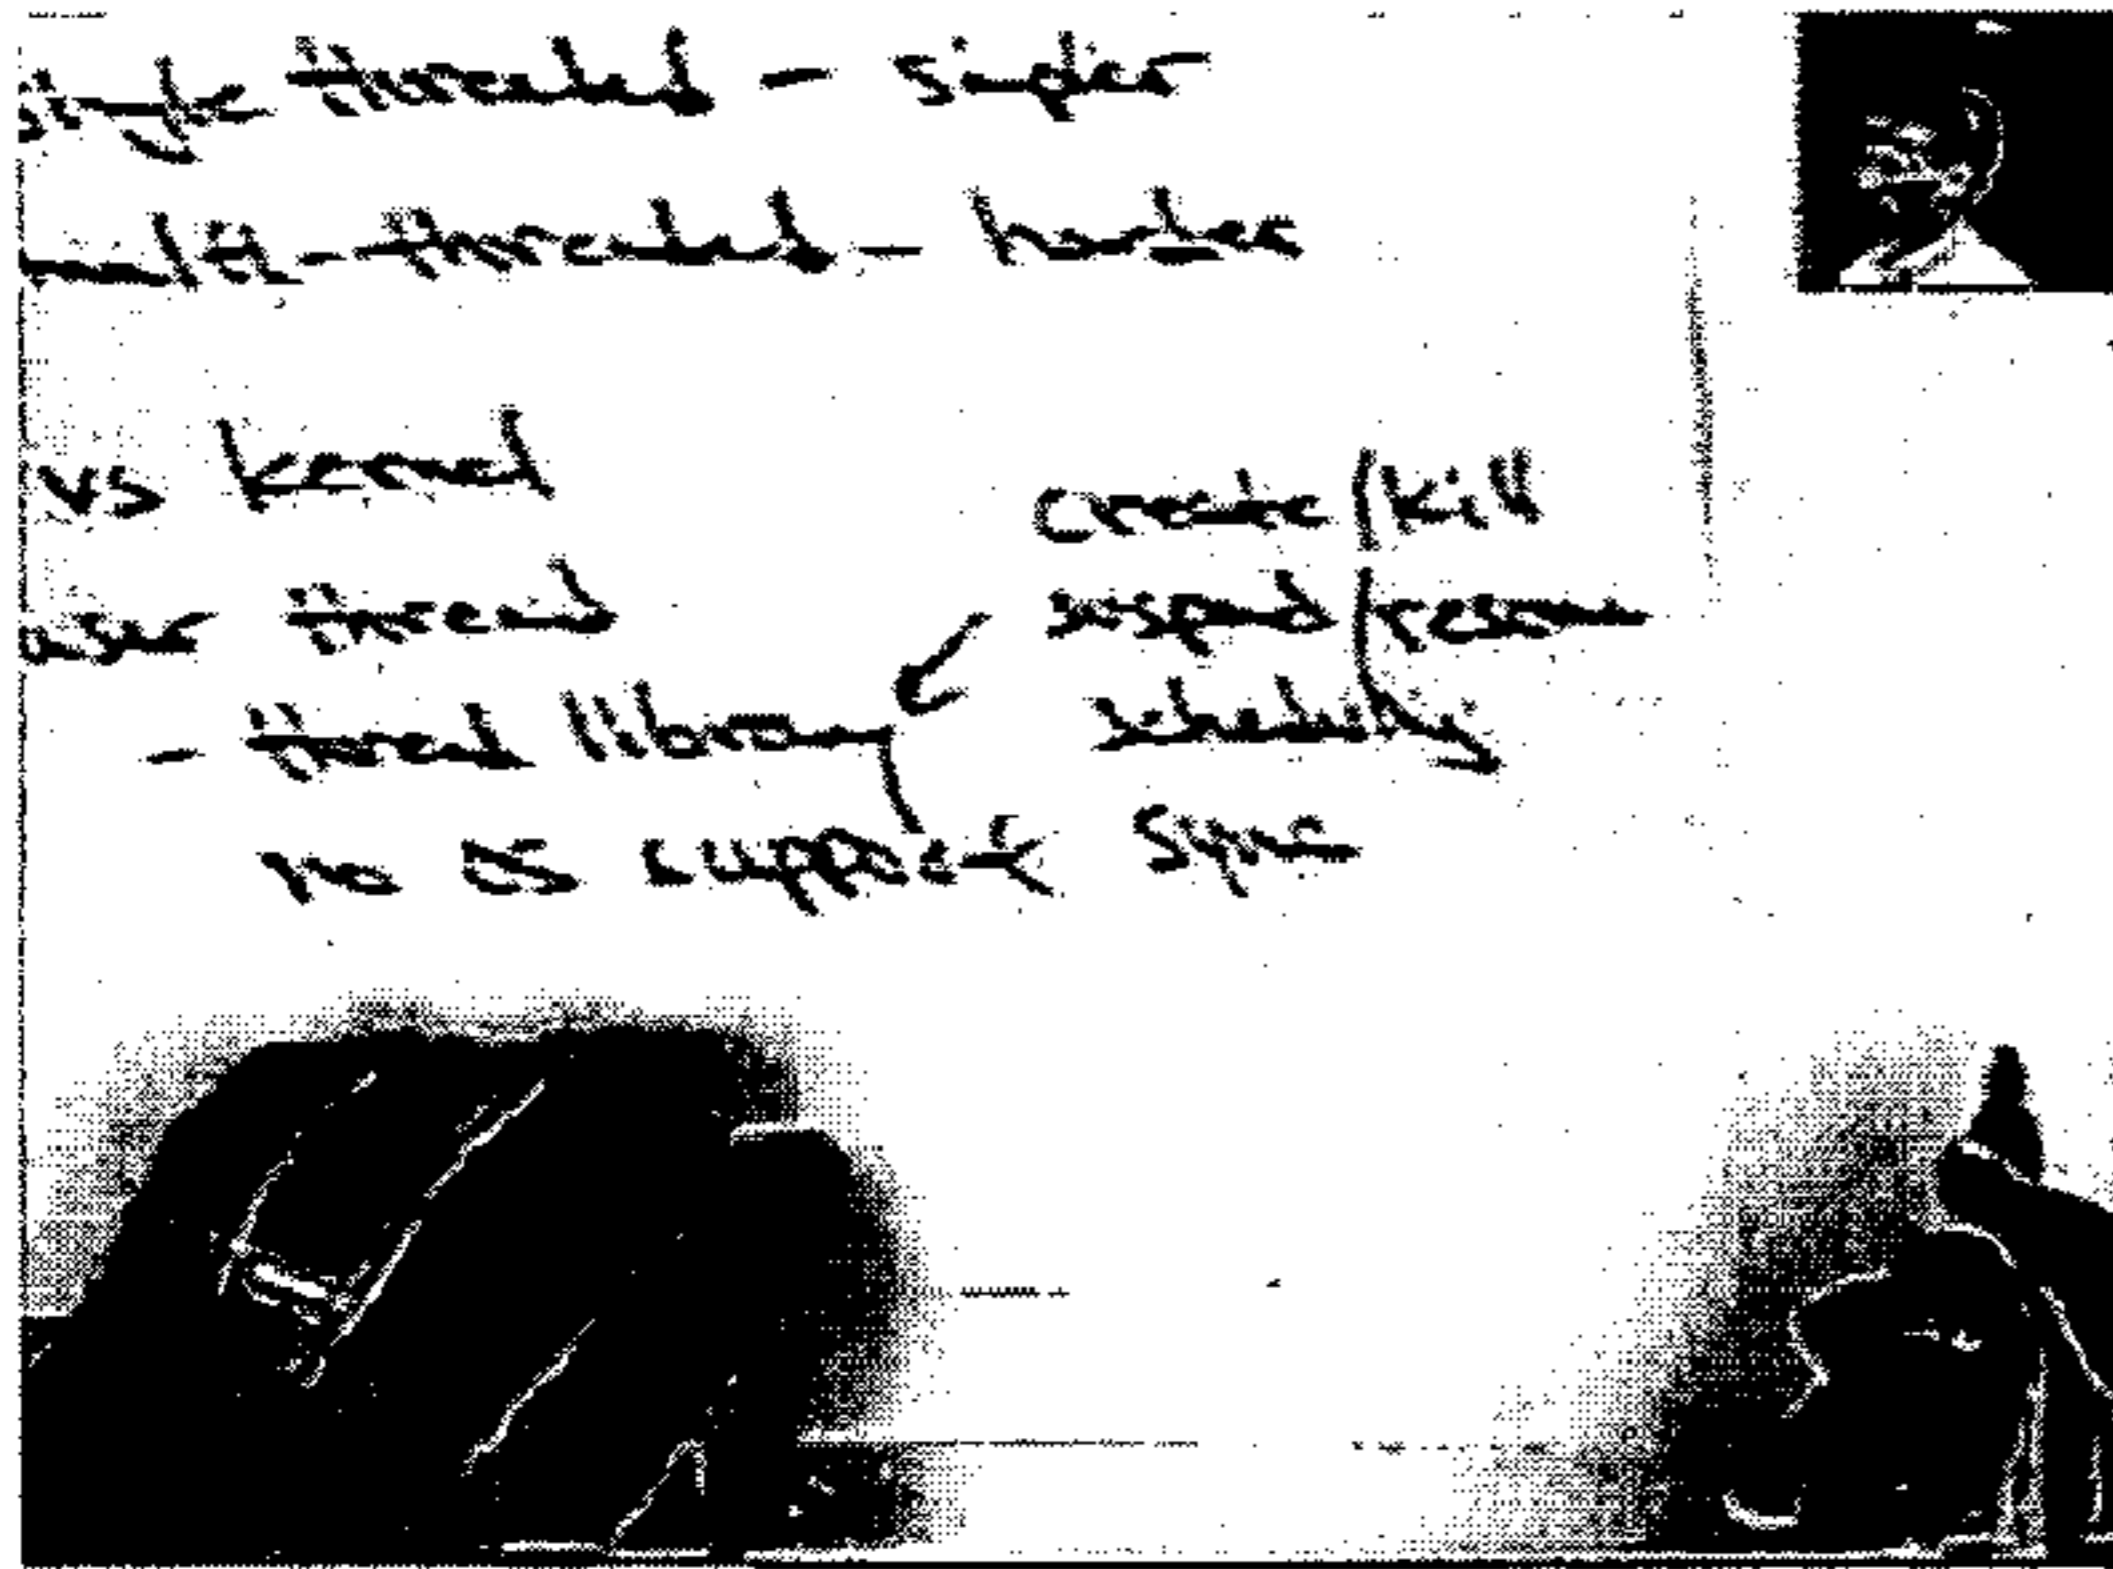 single threaded - simpler
multi-threaded - harder
vs kernel
user thread
- thread library
no OS support
create/kill
suspend/resume
scheduling
sync